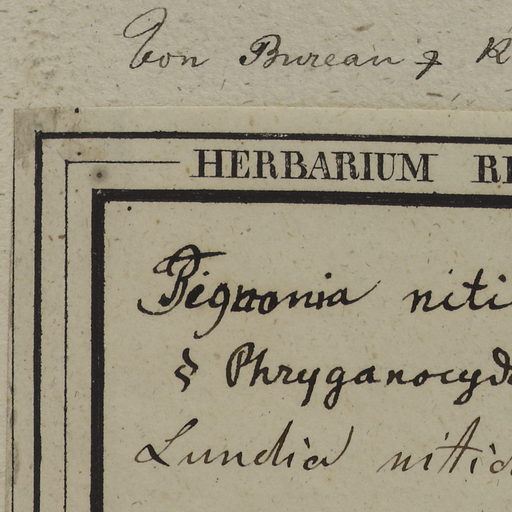 Von Bureau & K
HERBARIUM RE
Bignonia niti
§ Phryganocyd
Lundia nitid